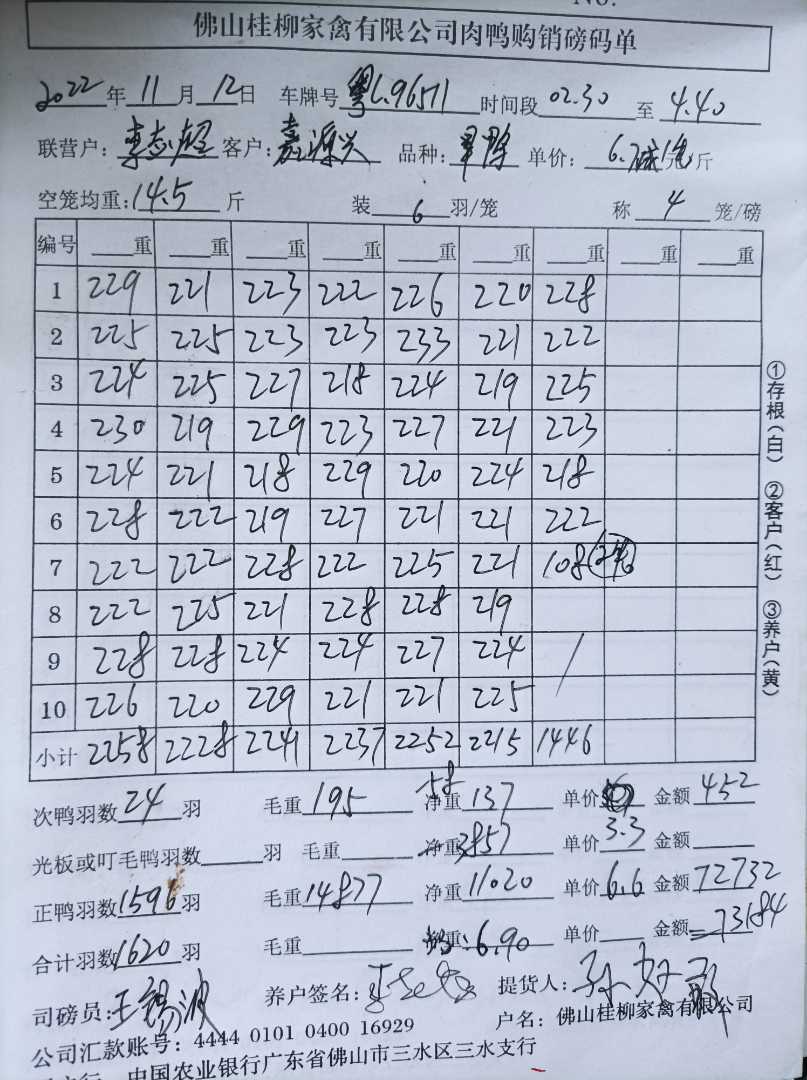 No.
佛山桂柳家禽有限公司肉鸭购销磅码单
2022年11月12日 车牌号粤L96511 时间段02.30至4.40
联营户:李志超 客户:嘉源兴 品种: 单价:6.7 元/斤
空笼均重:14.5斤 装6羽/笼 称4笼/磅
编号 重 重 重 重 重 重 重 重 重
1 229 221 223 222 226 220 228
2 225 225 223 223 233 221 222
3 224 225 227 218 224 219 225
4 230 219 229 223 227 221 223
5 224 221 218 229 220 224 218
6 228 222 219 227 221 221 222
7 222 222 228 222 225 221 108
8 222 225 221 228 228 219
9 228 228 224 224 227 224
10 226 220 229 221 221 225
小计 2258 2228 2241 2237 2252 2215 1446
次鸭羽数24羽 毛重195 58 净重137 单价 金额452
光板或叮毛鸭羽数 羽 毛重 净重3857 单价3.3 金额
正鸭羽数1596羽 毛重14877 净重11020 单价6.6 金额72732
合计羽数1620羽 毛重 重:6.90 单价 金额73184
司磅员:王锡波 养户签名: 提货人:
公司汇款账号:4444 0101 0400 16929 户名:佛山桂柳家禽有限公司
中国农业银行广东省佛山市三水区三水支行
①存根(白) ②客户(红) ③养户(黄)